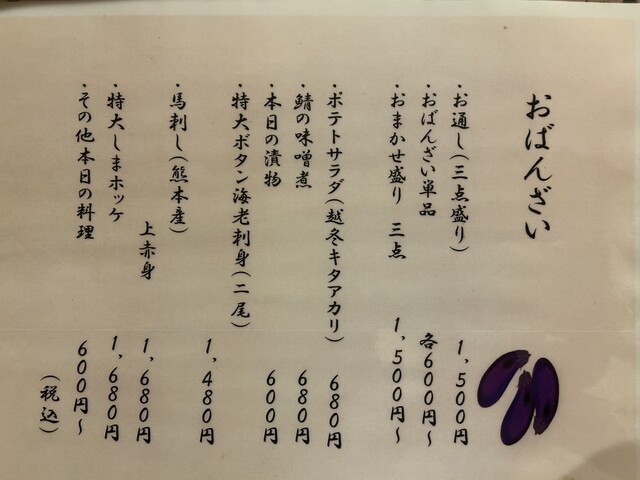 おばんざい
・お通し(三点盛り) 1,500円
・おばんざい単品 各600円~
・おまかせ盛り 三点 1,500円~
・ポテトサラダ(越冬キタアカリ) 680円
・鯖の味噌煮 680円
・本日の漬物 600円
・特大ボタン海老刺身(二尾) 1,480円
・馬刺し(熊本産)
上赤身 1,680円
・特大しまホッケ 1,680円
・その他本日の料理 600円~
(税込)